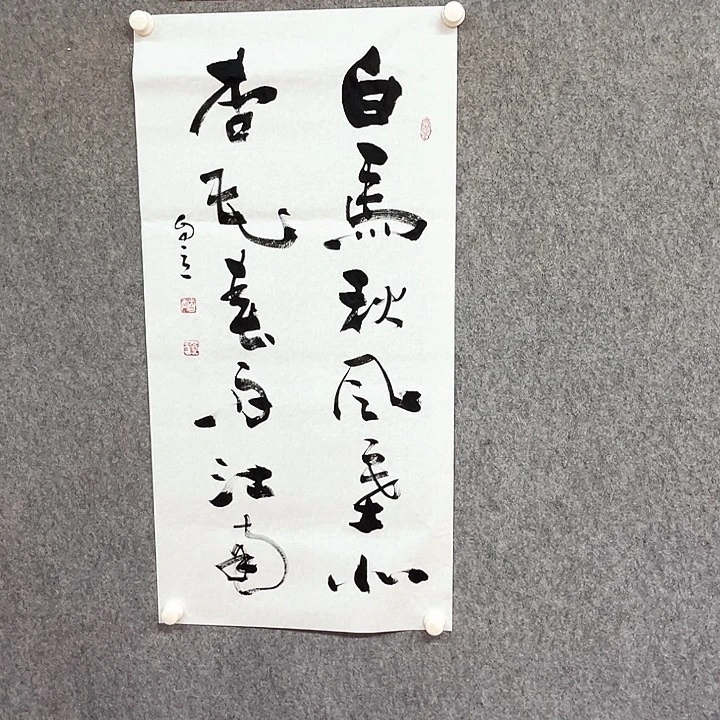 白馬秋风塞北
杏花春雨江南